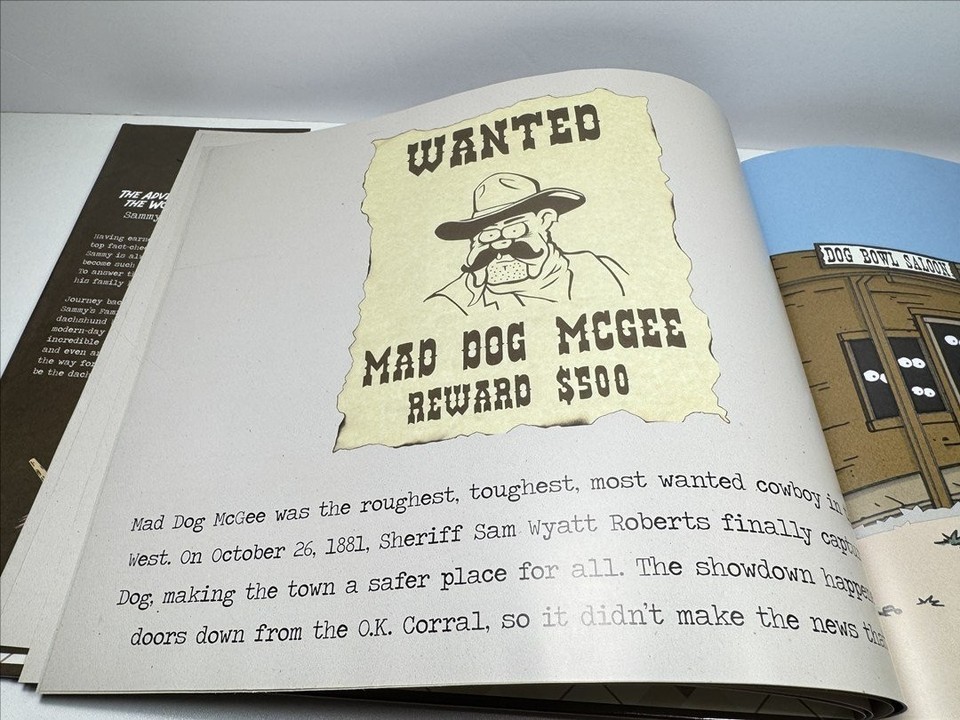 THE ADV
THE WO
Sammy
Having earn
top fact-che
Sammy is al
become such
To answer t
his family
Journey bac
Sammy's Fam
dachshund
modern-day
incredible
and even a
the way for
be the dach
WANTED
MAD DOG MCGEE
REWARD $500
Mad Dog McGee was the roughest, toughest, most wanted cowboy in
West. On October 26, 1881, Sheriff Sam Wyatt Roberts finally captu
Dog, making the town a safer place for all. The showdown happe
doors down from the O.K. Corral, so it didn't make the news tha
DOG BOWL SALOON